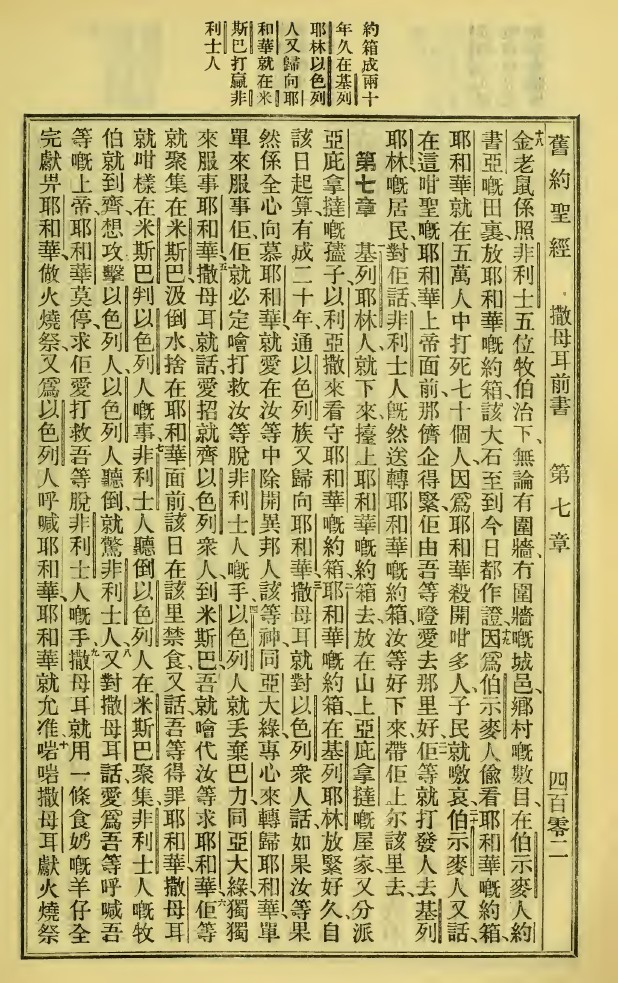 約箱成兩十
年久在基列
耶林以色列
人又歸向耶
和華就在米
斯巴打贏非
利士人
舊約聖經 撒母耳前書 第七章 四百零二
十八金老鼠係照非利士五位牧伯治下、無論有圍牆冇圍牆嘅城邑、鄉村嘅數目、在伯示麥人約
書亞嘅田裏放耶和華嘅約箱該大石至到今日都作證十九因爲伯示麥人偸看耶和華嘅約箱、
耶和華就在五萬人中打死七十個人、因爲耶和華殺開咁多人子民就噭哀二十伯示麥人又話、
在這咁聖嘅耶和華上帝面前那儕企得緊、佢由吾等嶝愛去那里好二一佢等就打發人去基列
耶林嘅居民、對佢話、非利士人旣然送轉耶和華嘅約箱、汝等好下來帶佢上尔該里去、
第七章 基列耶林人就下來、擡上耶和華嘅約箱去放在山上亞庇拿撻嘅屋家、又分派
亞庇拿撻嘅孻子以利亞撒來看守耶和華嘅約箱、二耶和華嘅約箱在基列耶林放緊好久、自
該日起算有成二十年、通以色列族又歸向耶和華、三撒母耳就對以色列衆人話、如果汝等果
然係全心向慕耶和華、就愛在汝等中除開異邦人該等神同亞大綠、專心來轉歸耶和華、單
單來服事佢、佢就必定噲打救汝等脫非利士人嘅手、四以色列人就丟棄巴力同亞大綠、獨獨
來服事耶和華、五撒母耳就話、愛招就齊以色列衆人到米斯巴、吾就噲代汝等求耶和華、六佢等
就聚集在米斯巴、汲倒水捨在耶和華面前、該日在該里禁食、又話、吾等得罪耶和華、撒母耳
就咁樣在米斯巴判以色列人嘅事、七非利士人聽倒以色列人在米斯巴聚集、非利士人嘅牧
伯就到齊想攻擊以色列人、以色列人聽倒、就驚非利士人、八又對撒母耳話、愛爲吾等呼喊吾
等嘅上帝耶和華莫停、求佢愛打救吾等脫非利士人嘅手、九撒母耳就用一條食奶嘅羊仔全
完獻畀耶和華、做火燒祭、又爲以色列人呼喊耶和華、耶和華就允准、十啱啱撒母耳獻火燒祭